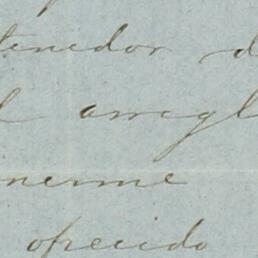 tenedor d
l arregl
nerme
ofrecido